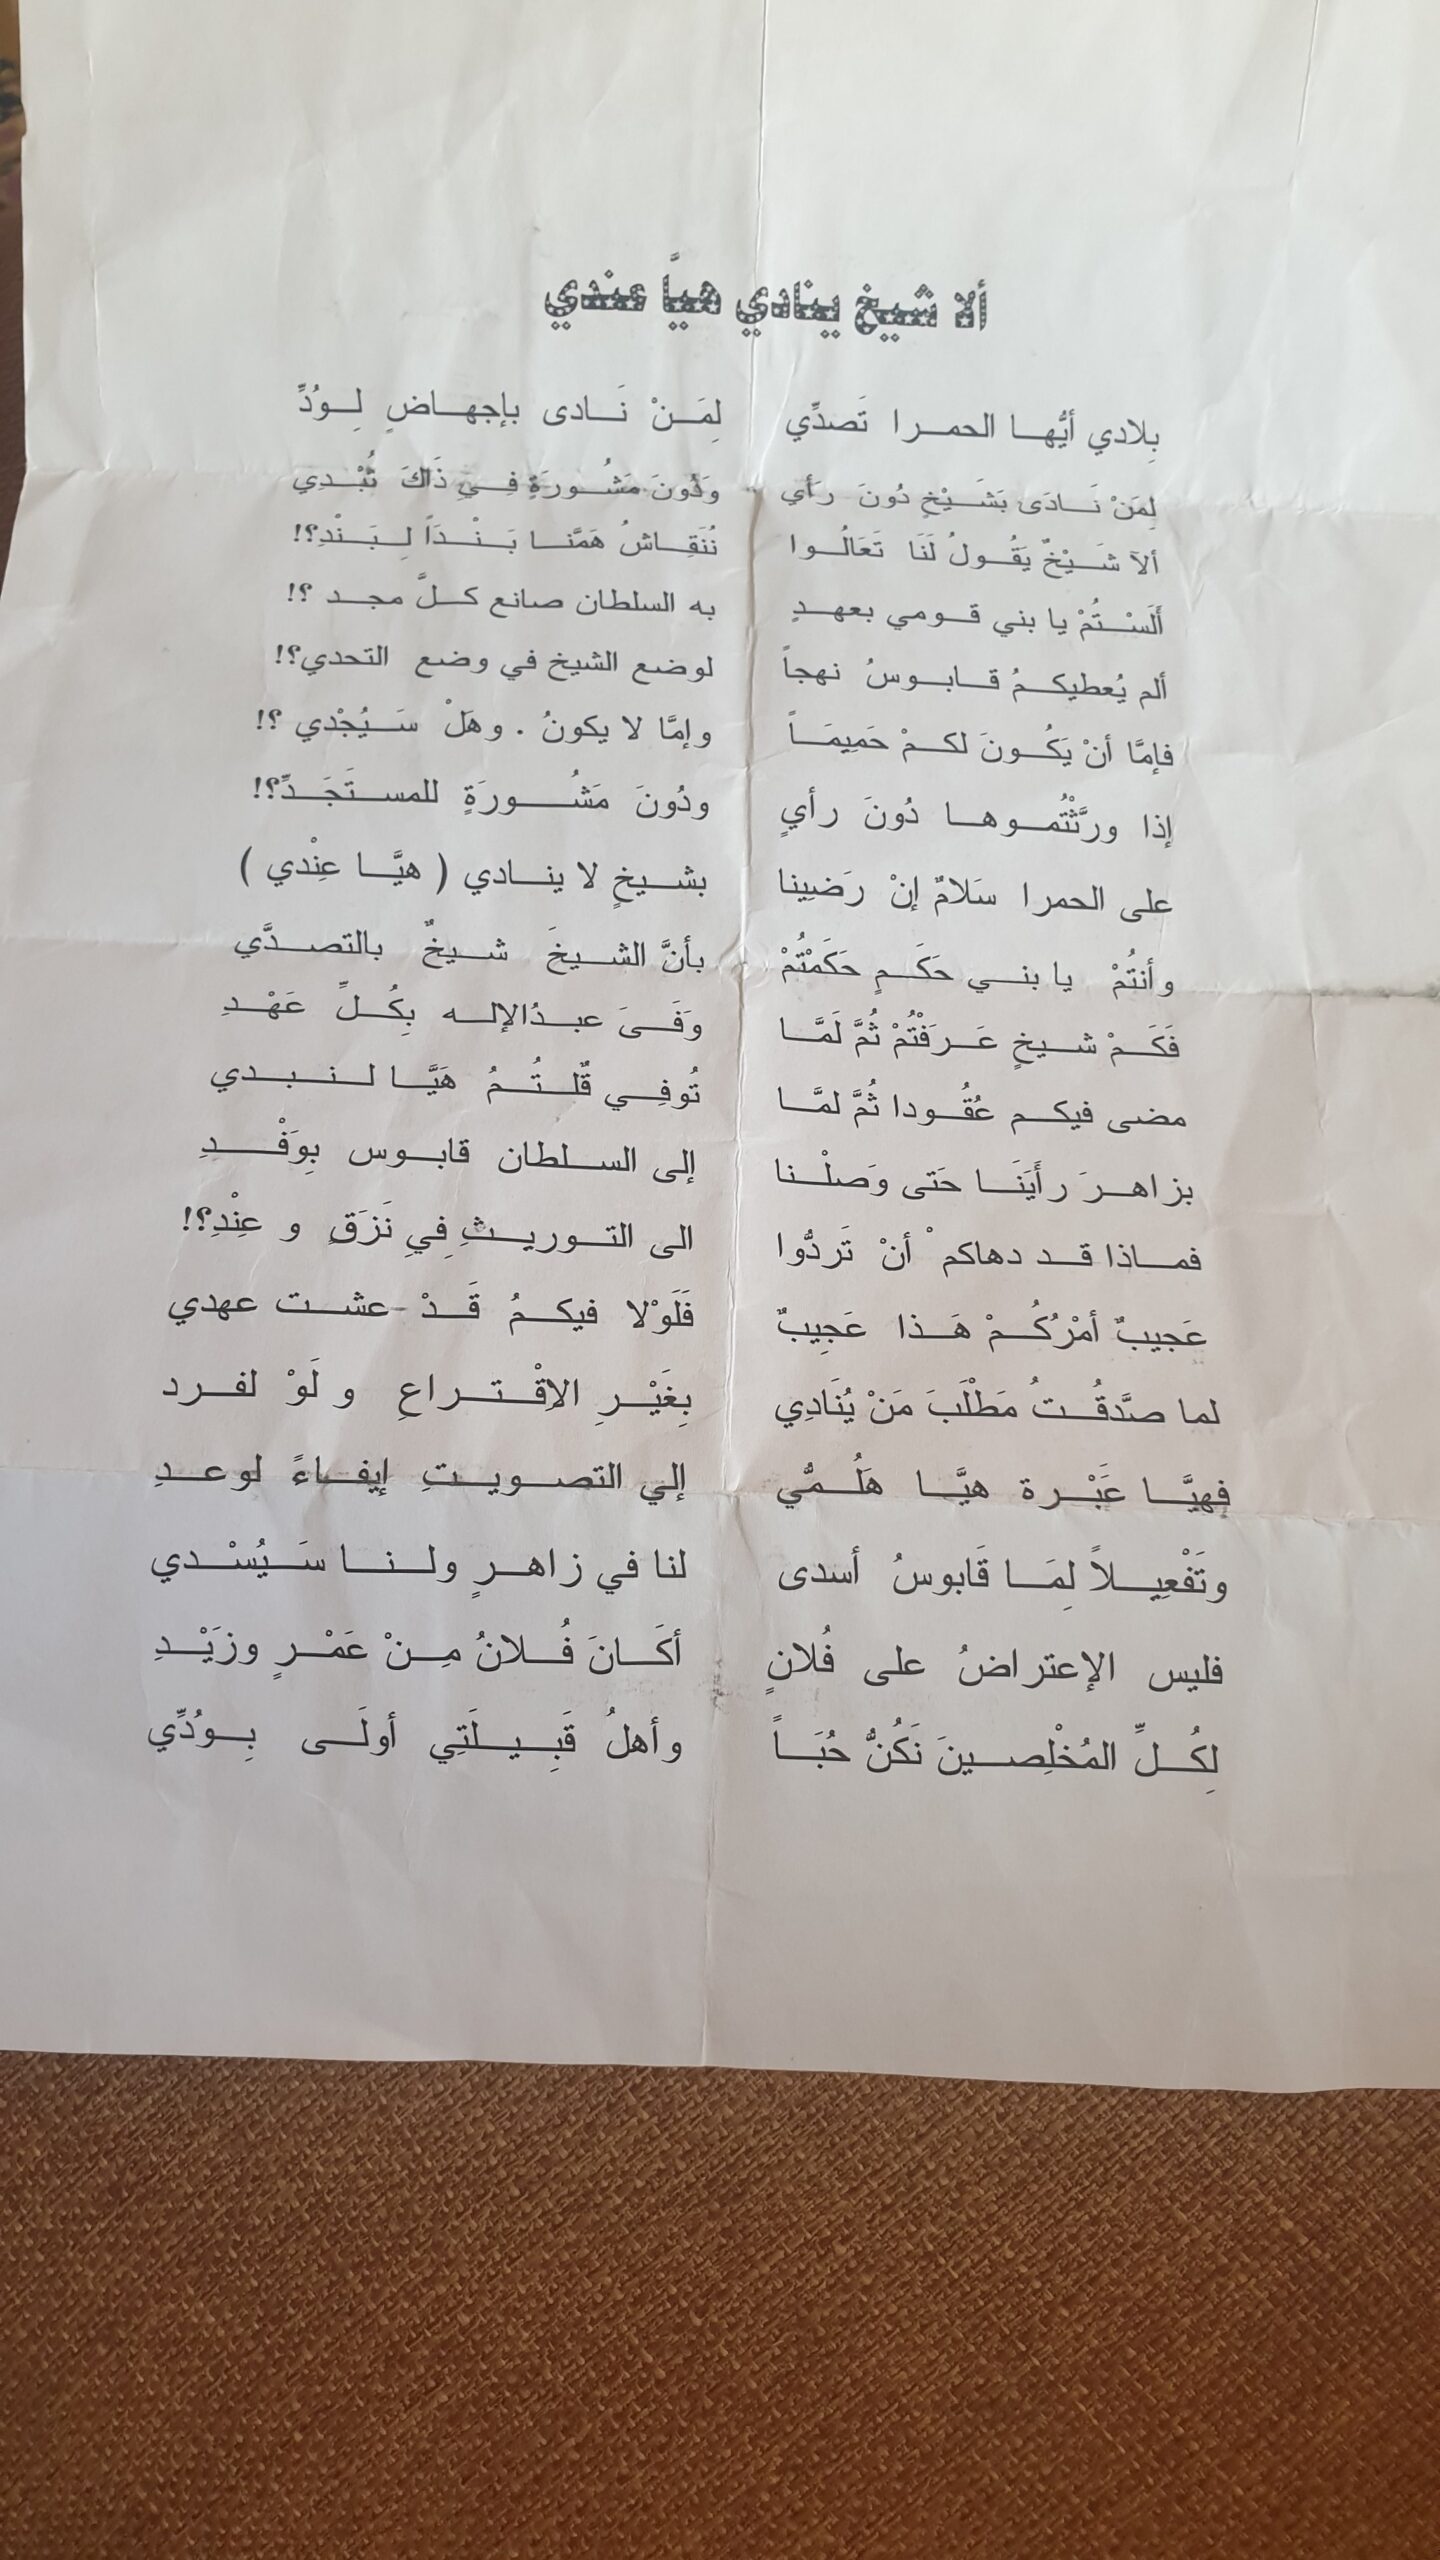 ألا شيخ ينادي هيَّا عندي
بِلادي أيُّها الحمرا تَصدِّي لِمَنْ نَادى بإجهاضٍ لِوُدِّ
لِمَنْ نَادَى بَشَيْخٍ دُونَ رَأي وَدُونَ مَشُورَةٍ فِي ذَاكَ تُبْدِي
ألآ شَيْخٌ يَقُولُ لَنَا تَعَالُوا نُنَقِاشُ هَمَّنا بَنْدَاً لِبَنْدِ؟!
أَلَسْتُمْ يا بني قومي بعهدٍ به السلطان صانع كلَّ مجد ؟!
ألم يُعطيكمُ قابوسُ نهجاً لوضع الشيخ في وضع التحدي؟!
فإمَّا أنْ يَكُونَ لكمْ حَمِيمَاً وإمَّا لا يكونُ . وهَلْ سَيُجْدي ؟!
إذا ورَّثْتُموها دُونَ رأيٍ ودُونَ مَشُورَةٍ للمستَجَدِّ؟!
على الحمرا سَلامٌ إنْ رَضيِنا بشيخٍ لا ينادي ( هيَّا عِنْدي )
وأنتُمْ يا بني حَكَمٍ حَكَمْتُمْ بأنَّ الشيخَ شيخٌ بالتصدَّي
فَكَمْ شيخٍ عَرَفْتُمْ ثُمَّ لَمَّا وَفَىَ عبدُالإله بِكُلِّ عَهْدِ
مضى فيكم عُقُودا ثُمَّ لمَّا تُوفِي قُلتُمُ هَيَّا لنبدي
بزاهرَ رأَيَنَا حَتى وَصلْنا إلى السلطان قابوس بِوَفْدِ
فماذا قد دهاكمْ أنْ تَردُّوا الى التوريثِ فِيِ نَزَقٍ و عِنْدِ؟!
عَجيبٌ أمْرُكُمْ هَذا عَجِيبٌ فَلَوْلا فيكمُ قَدْ عشت عهدي
لما صدَّقُتُ مَطْلَبَ مَنْ يُنَادِي بِغَيْرِ الاقْتراعِ و لَوْ لفرد
فهيَّا عَبْرة هيَّا هَلُمُّي إلي التصويتِ إيفاءً لوعدِ
وتَفْعِيلاً لِمَا قَابوسُ أسدى لنا في زاهرٍ ولنا سَيُسْدي
فليس الإعتراضُ على فُلانٍ أكَانَ فُلانُ مِنْ عَمْرٍ وزَيْدِ
لِكُلِّ المُخْلِصينَ نَكُنُّ حُبَاً وأهلُ قَبِيلَتِي أولَى بِوُدِّي